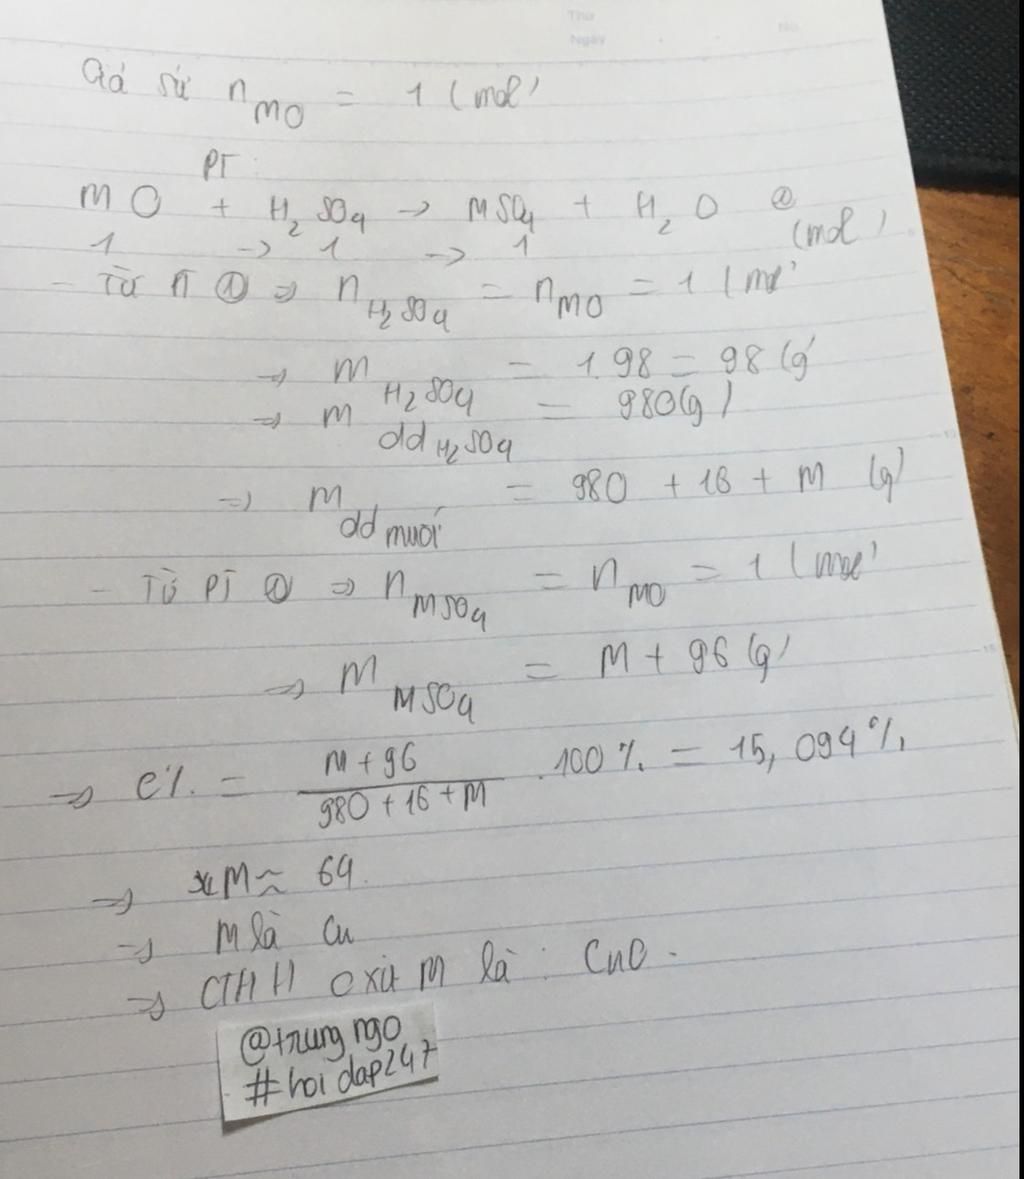 Thứ
Ngày No.
Giả sử n MO = 1 (mol)
PT:
MO + H2SO4 → MSO4 + H2O ①
1 → 1 → 1 (mol)
- Từ PT ① => n H2SO4 = n MO = 1 (mol)
=> m H2SO4 = 1.98 = 98 (g)
=> m dd H2SO4 = 980 (g)
=> m dd muối = 980 + 16 + M (g)
- Từ PT ① => n MSO4 = n MO = 1 (mol)
=> m MSO4 = M + 96 (g)
=> C% = (M + 96)/(980 + 16 + M) .100% = 15,094%
=> M ≈ 64.
=> M là Cu
=> CTHH oxit M là : CuO.
@trung ngo
#hoidap247